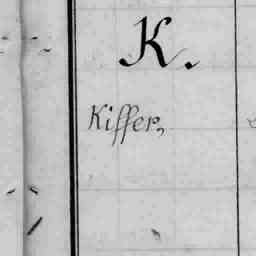 K.
Kiffer,